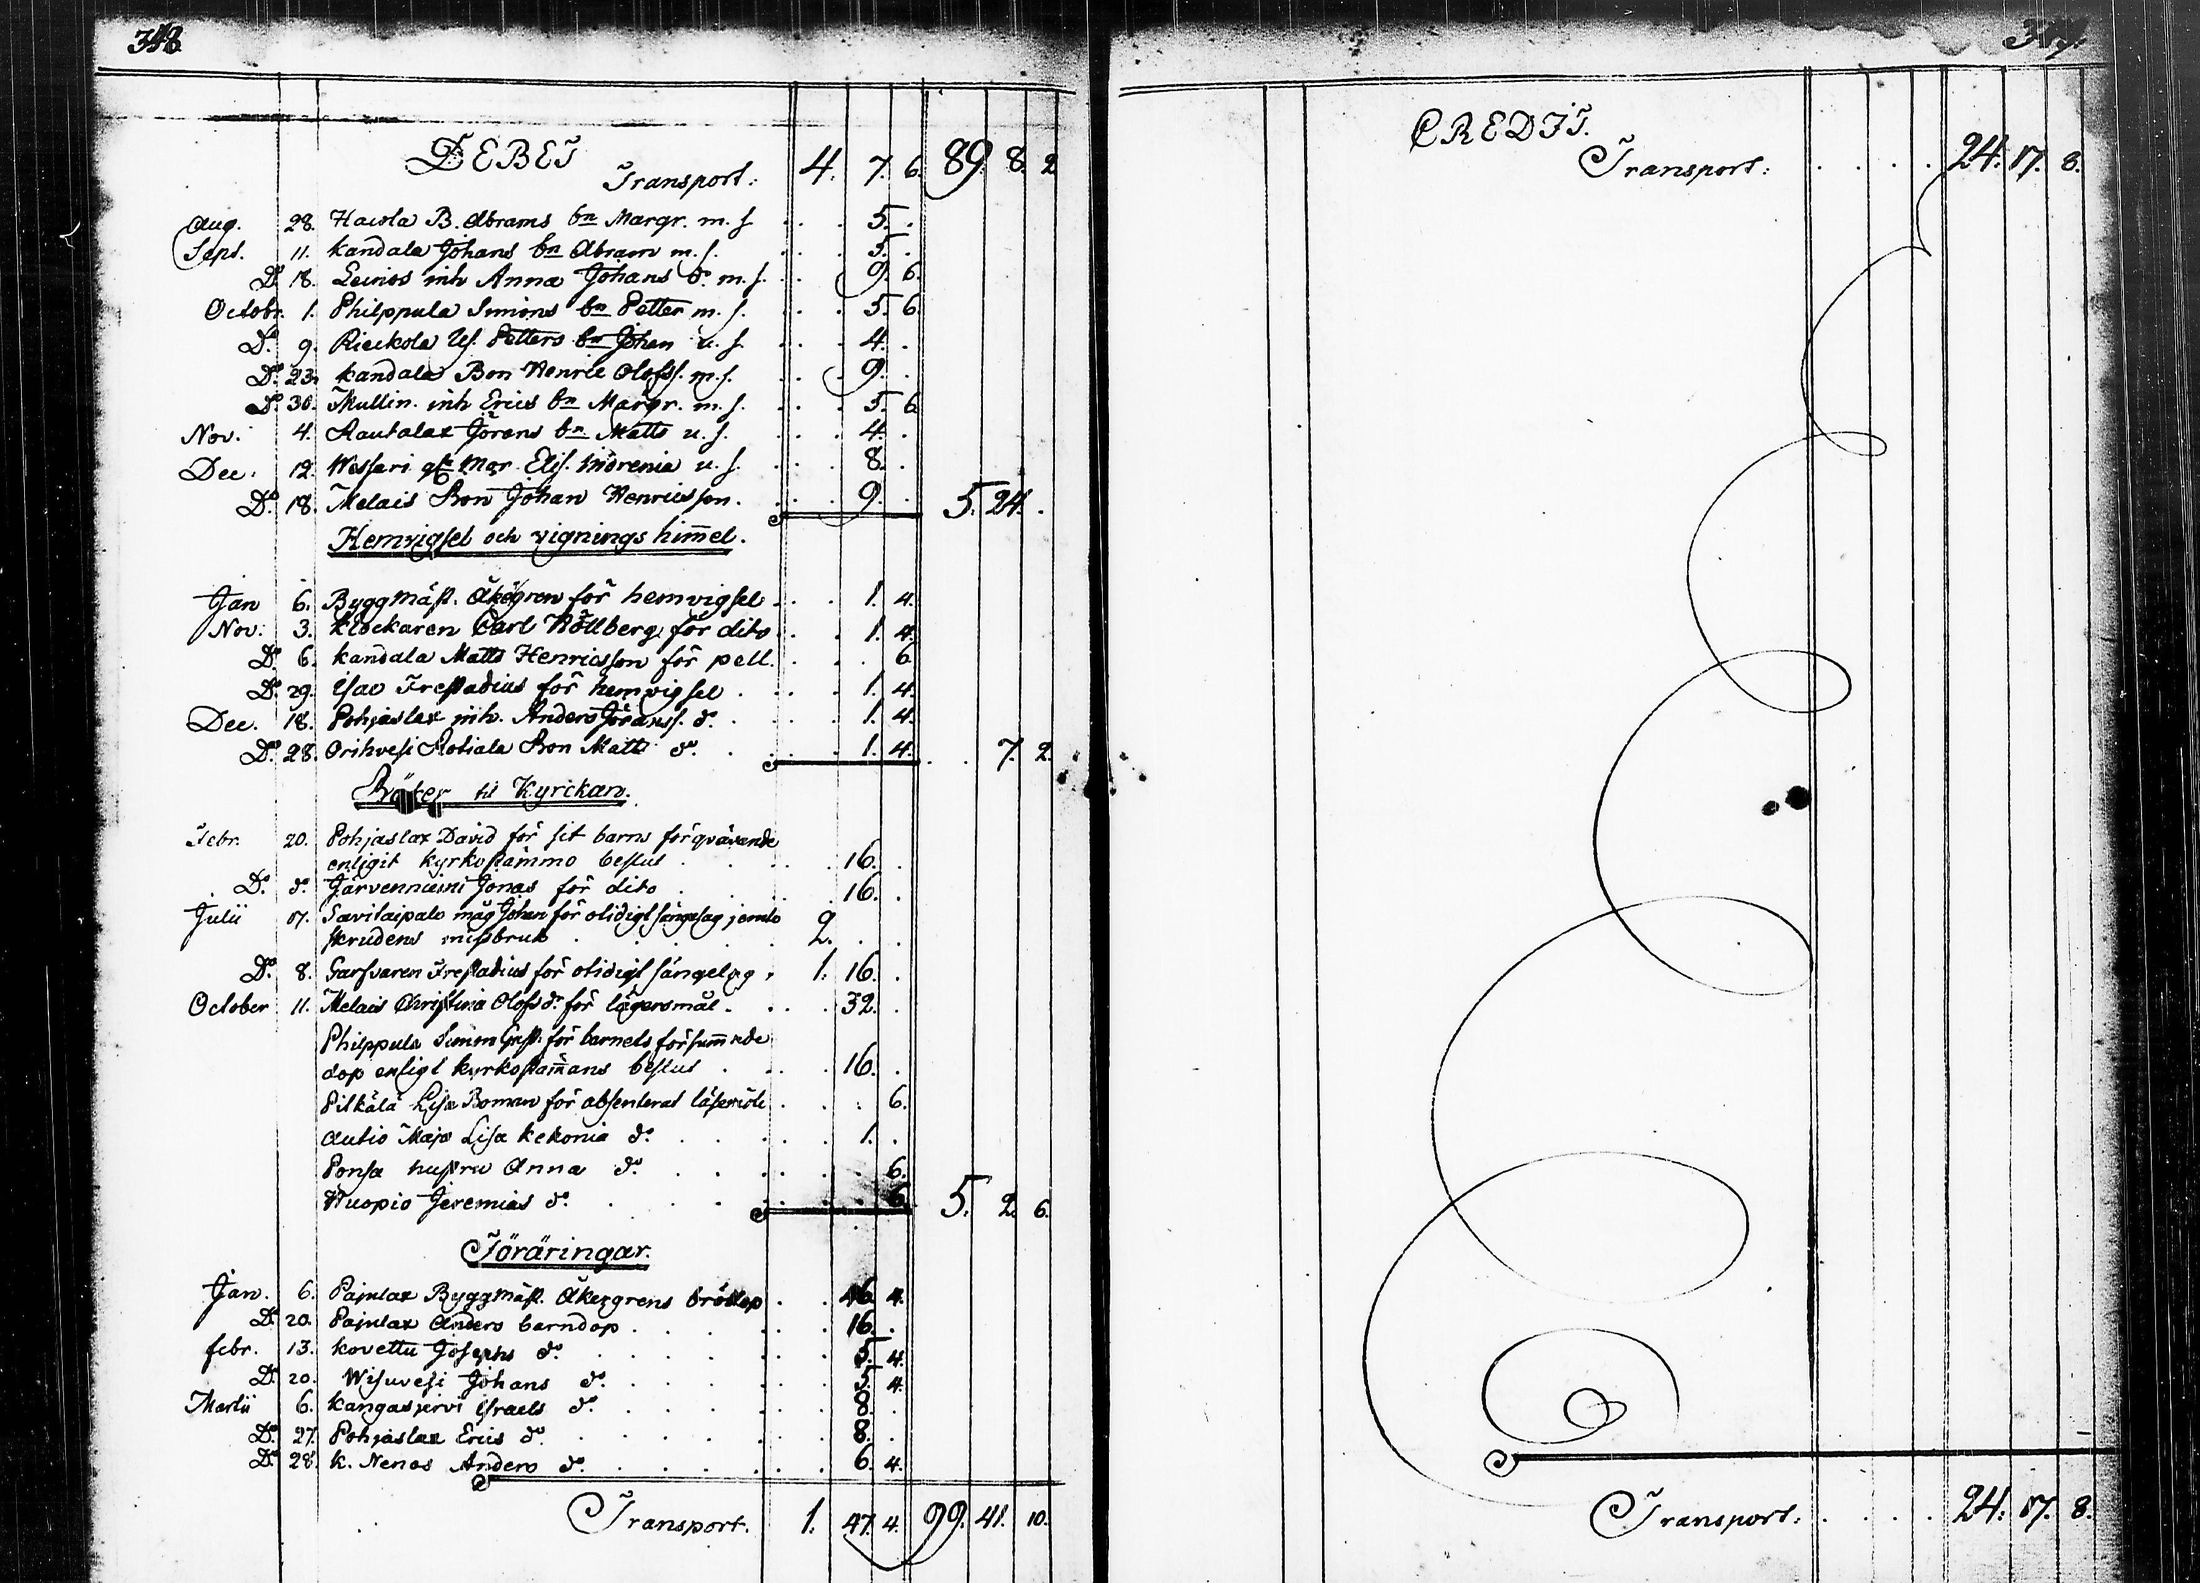 318
DEBET
Transport: 4. 7. 6. 89. 8. 2
Aug. 28. B. Abrams bn Margr. m. s. . . . 5. .
Sept. 11. Kandala Johans bn Abram m. s. . . . 5. .
Do 18. Leinos inh Anna Johans do. m. s. . . 9. 6.
Octobr. 1. Philppula Simons bn Petter m. s. . . . 5. 6.
Do 9. Rieckola Petters bn Johan u. s. . . . 4. .
Do 23. Kandala Bon Henric Olofss. m. s. . . . 9. .
Do 30. Mullin. inh Erics bn Margr. m. s. . . . 5. 6
Nov. 4. Rautalax Jörens bn Matts u. s. . . . 4. .
Dec. 12. Wessari Elis. u. s. . . . 8. .
Do 18. Melais Bon Johan Henricsson. . . . 9. . 5. 24. .
Hemvigsel och vignings himmel.
Jan 6. Byggmäst. Åkergren för hemvigsel . . . 1. 4.
Nov. 3. Klockaren Carl för dito . . 1. 4.
Do 6. Kandala Matts Henricsson för pell. . . . 6.
Do 29. Isac Frestadius för hemvigsel . . . . 1. 4.
Dec. 18. Pohjaslax inh. Anders Jöranss. do. . . . . 1. 4.
Do 28. Orihvesi Rotiala Bon Matts do. . . . . 1. 4. . . 7. 2.
Böter til Kyrckan.
Febr. 20. Pohjaslax David för sit barns förqväfvande
enligit kyrkostämmo beslut . . . . 16. .
Do. do. Järvenniemi Jonas för dito . . . . 16. .
Julii 07. Savitaipale måg Johan för otidigt sängelag jemte
skrudens missbruk . . . . . 2. . .
Do 8. Garfvaren Frestadius för otidigt sängelag . 1. 16. .
October 11. Melais Christina Olofsdr. för lägersmål . . . . 32. .
Philppula Simon för barnets försummade
dop enligt kyrkostämmans beslut . . . . 16. .
Pitkälä Lisa Boman för absenterat . . . 6.
Autio Maja Lisa Kekonia do. . . . . . 1. .
Ponsa hustru Anna do. . . . . . . 6.
Wuopio Jeremias do. . . . . . . 6. 5. 2. 6.
Föräringar.
Jan. 6. Pajulax Byggmäst. Åkergrens bröllop . . . 46. 4.
Do 20. Pajulax Anders barndop . . . . . . 16. .
febr. 13. Kovettu Josephs do. . . . . . . 5. 4.
Do. 20. Wisuvesi Johans do. . . . . . . 5. 4.
Martii 6. Kangasjervi Israels do. . . . . . . 8. .
Do. 27. Pohjaslax Erics do. . . . . . . 8. .
Do. 28. K. Nenos Anders do. . . . . . . 6. 4.
Transport. 1. 47. 4. 99. 41. 10.
CREDIT.
Transport: . . . . 24. 17. 8.
Transport: . . . . 24. 17. 8.